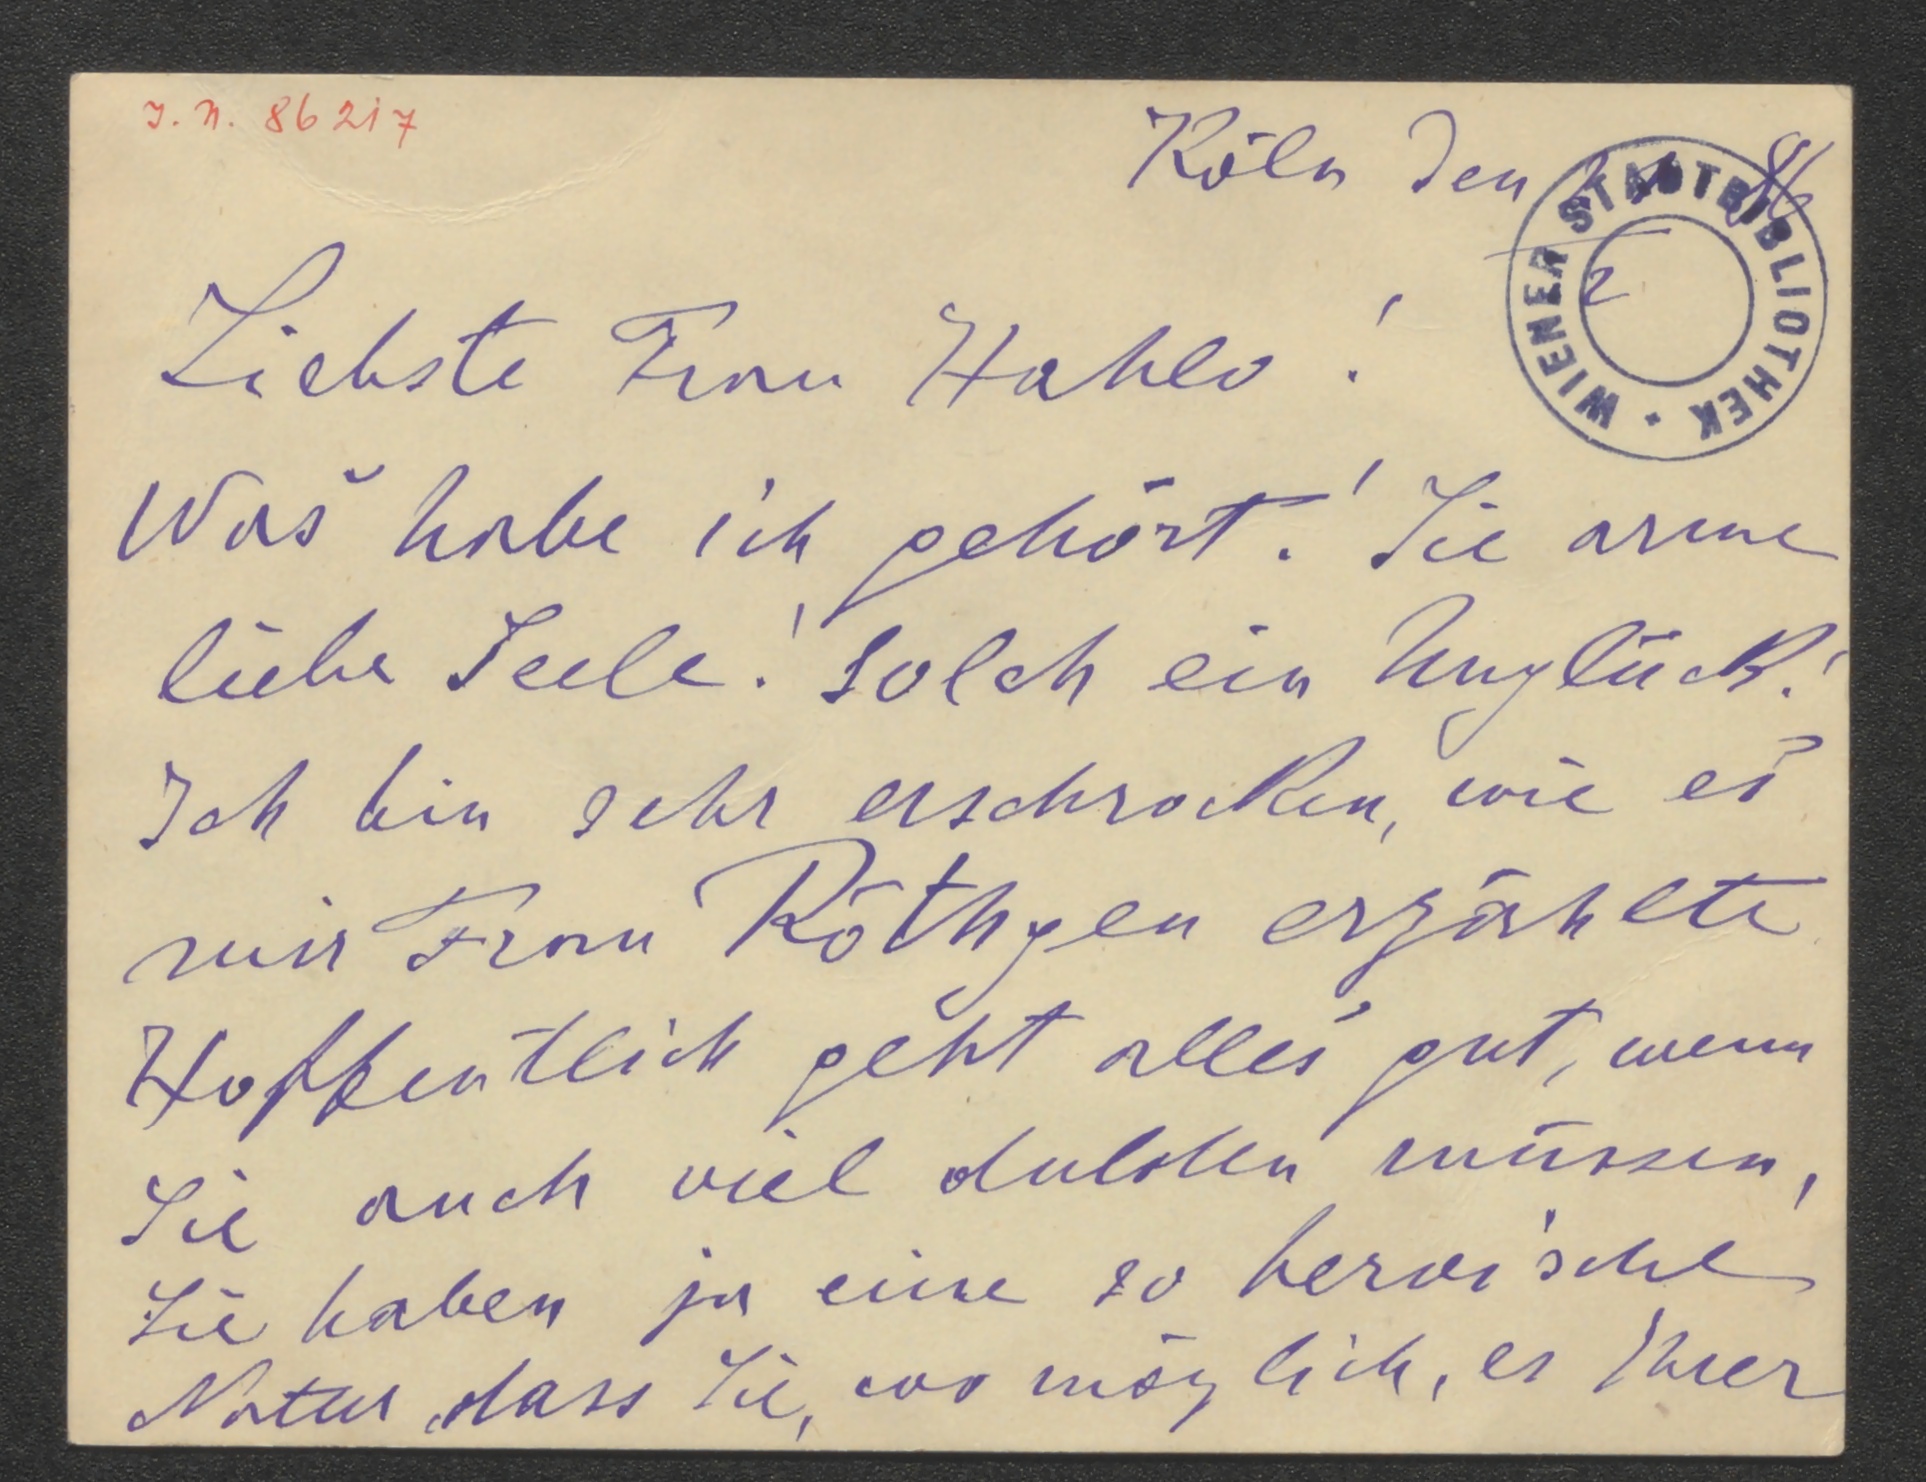 J. N. 86217
Köln den
2
WIENER STADTBIBLIOTHEK
Liebste Frau Hahlo!
Was habe ich gehört! Sie arme
liebe Seele! Solch ein Unglück!
Ich bin sehr erschrocken, wie es
mir Frau Röthgen erzählte
Hoffentlich geht alles gut, wenn
Sie auch viel dulden müssen,
Sie haben ja eine so heroische
Natur, dass Sie, wo möglich, es Ihrer